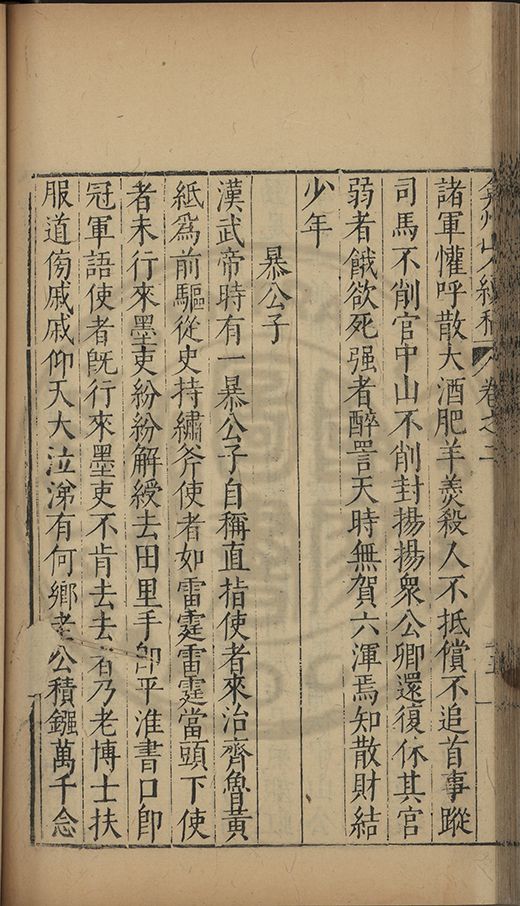 弇州山人續稿 卷之二
諸軍懽呼散大酒肥羊羨殺人不抵償不追首事蹤
司馬不削官中山不削封揚揚衆公卿還復休其官
弱者餓欲死强者醉詈天時無賀六渾焉知散財結
少年
暴公子
漢武帝時有一暴公子自稱直指使者來治齊魯黃
紙爲前驅從史持繡斧使者如雷霆雷霆當頭下使
者未行來墨吏紛紛解綬去田里手卽平淮書口卽
冠軍語使者旣行來墨吏不肯去去者乃老博士扶
服道傍戚戚仰天大泣涕有何鄉老公積鏹萬千念